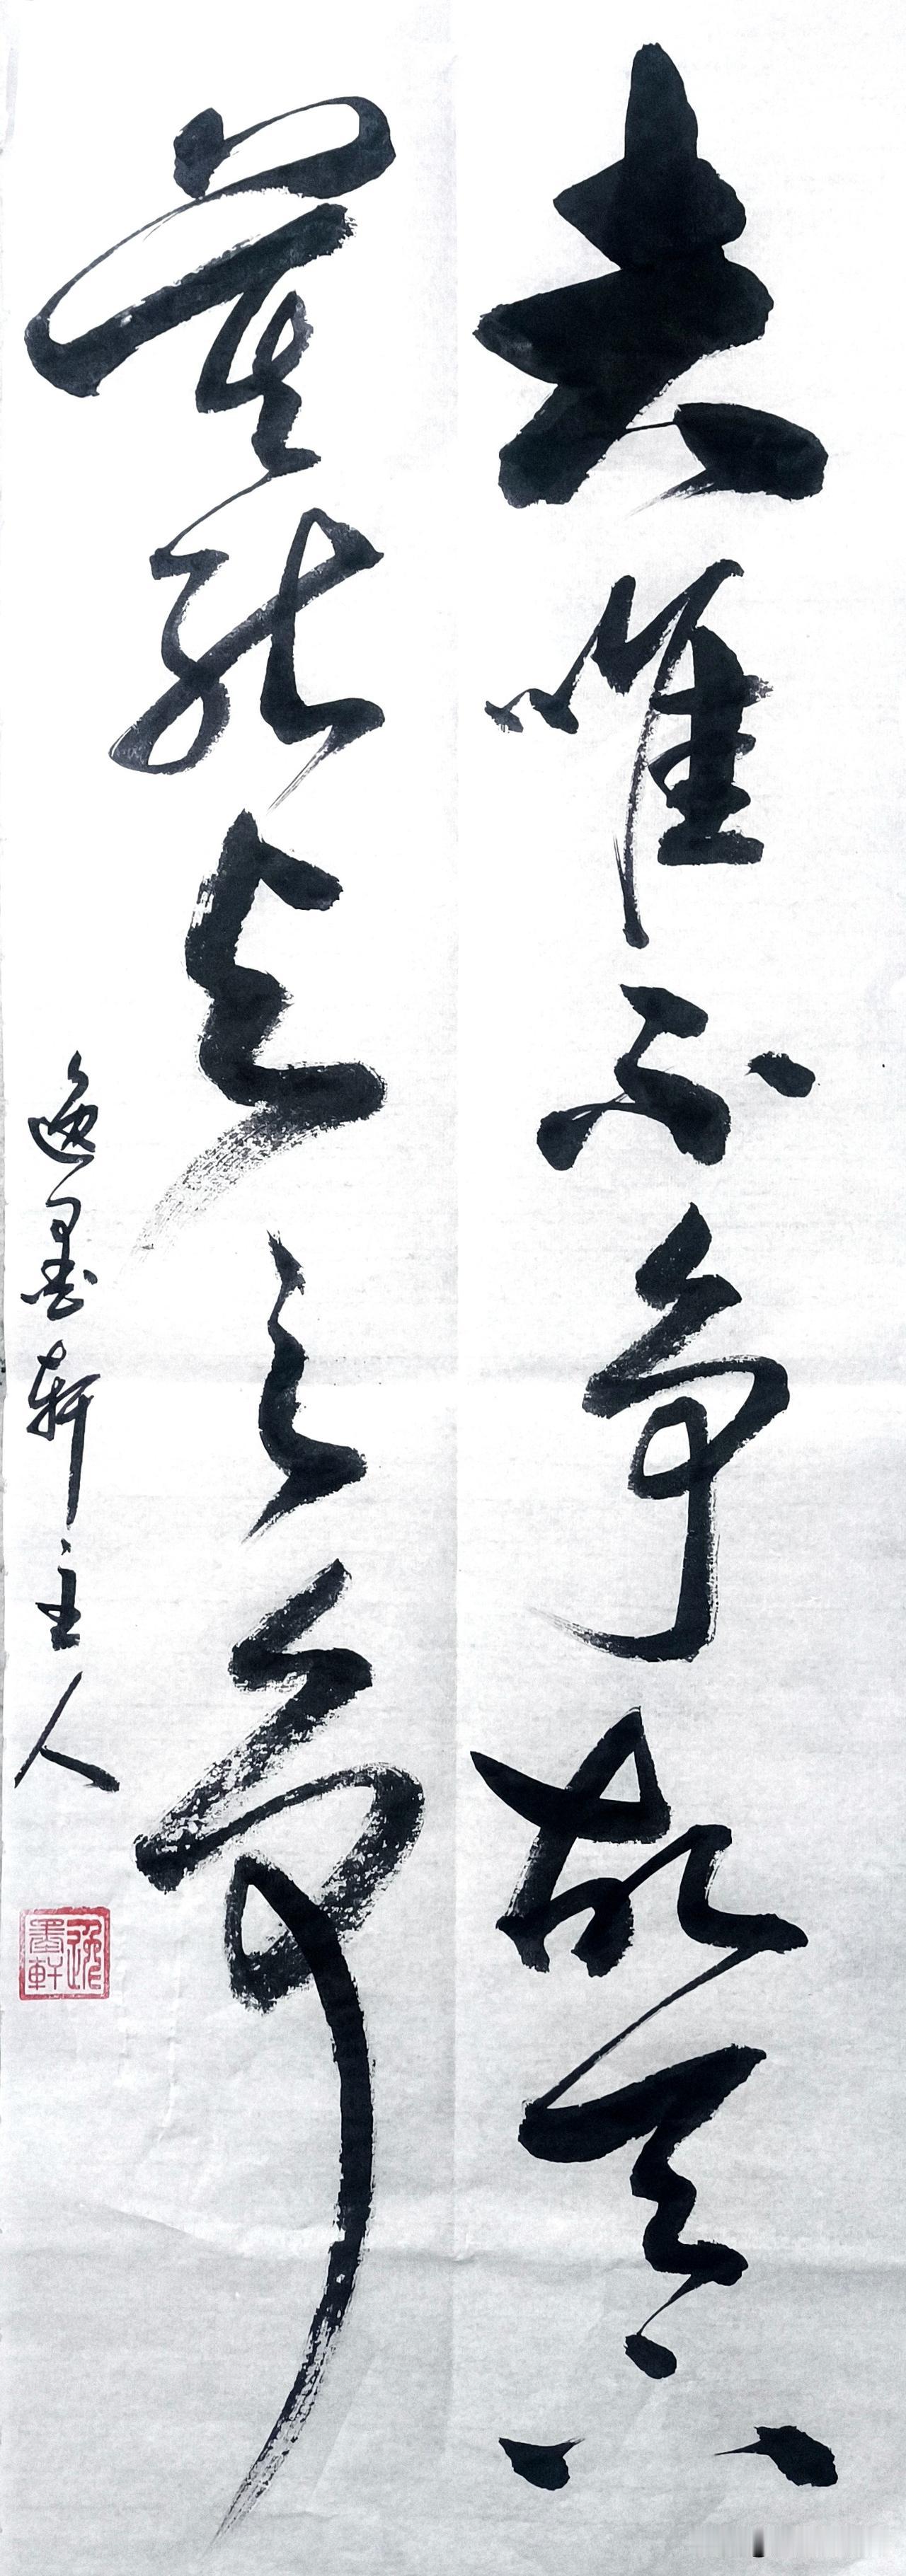 夫唯不争故天下
莫能与之争
逸墨轩主人
逸墨軒